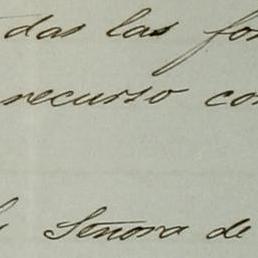 das las for
recurso con
Señora de